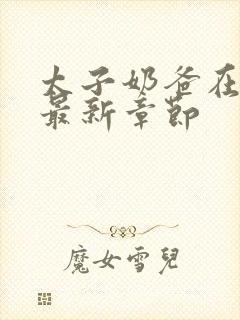 太子奶爸在
最新章節
魔女雪兒